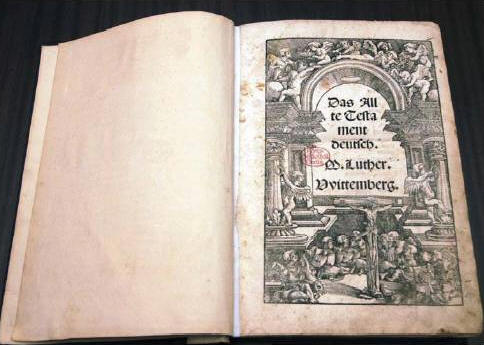 Das All
te Testa
ment
deutsch.
M. Luther.
Vvittemberg.